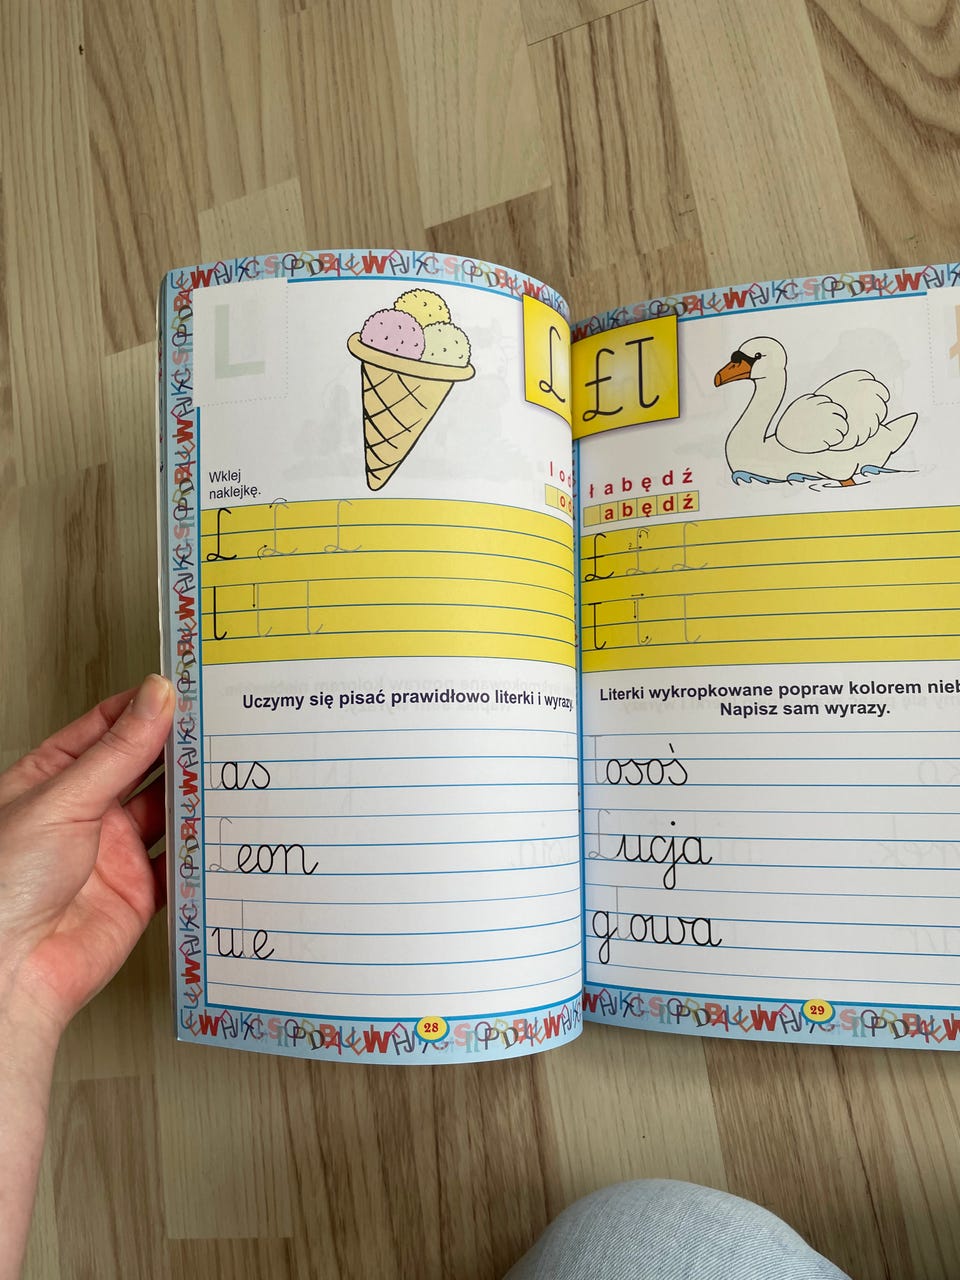 L
Wklej
naklejkę.
L
l o d
o d
L L L
l l l
Uczymy się pisać prawidłowo literki i wyrazy.
las
Leon
ule
28
Ł ł
ł a b ę d ź
a b ę d ź
Ł Ł Ł
ł ł ł
Literki wykropkowane popraw kolorem nieb
Napisz sam wyrazy.
łosoś
Łucja
głowa
29